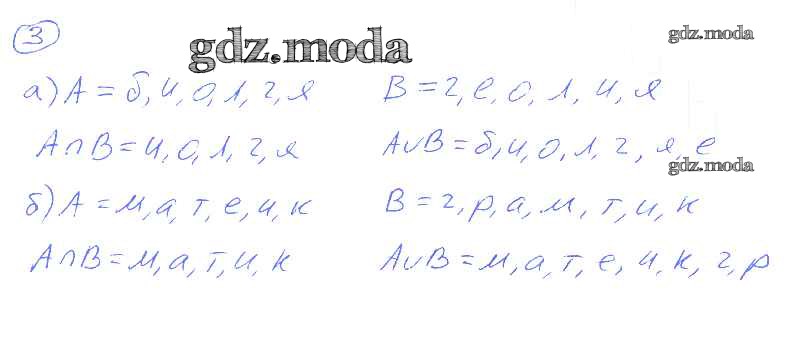 3
gdz.moda
gdz.moda
а) A = б, и, о, л, г, я
B = г, е, о, л, и, я
A∩B = и, о, л, г, я
A∪B = б, и, о, л, г, я, е
gdz.moda
б) A = м, а, т, е, и, к
B = г, р, а, м, т, и, к
A∩B = м, а, т, и, к
A∪B = м, а, т, е, и, к, г, р